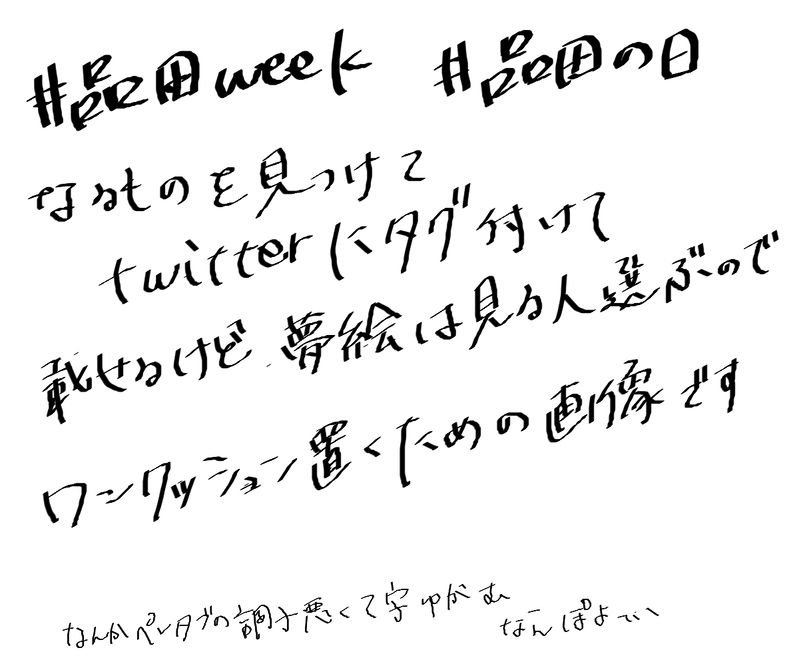 #品田week #品田の日
なるものを見つけて
twitterにタグ付けて
載せるけど、夢絵は見る人選ぶので
ワンクッション置くための画像です
なんかペンタブの調子悪くて字ゆがむ
なんぽよ〜い